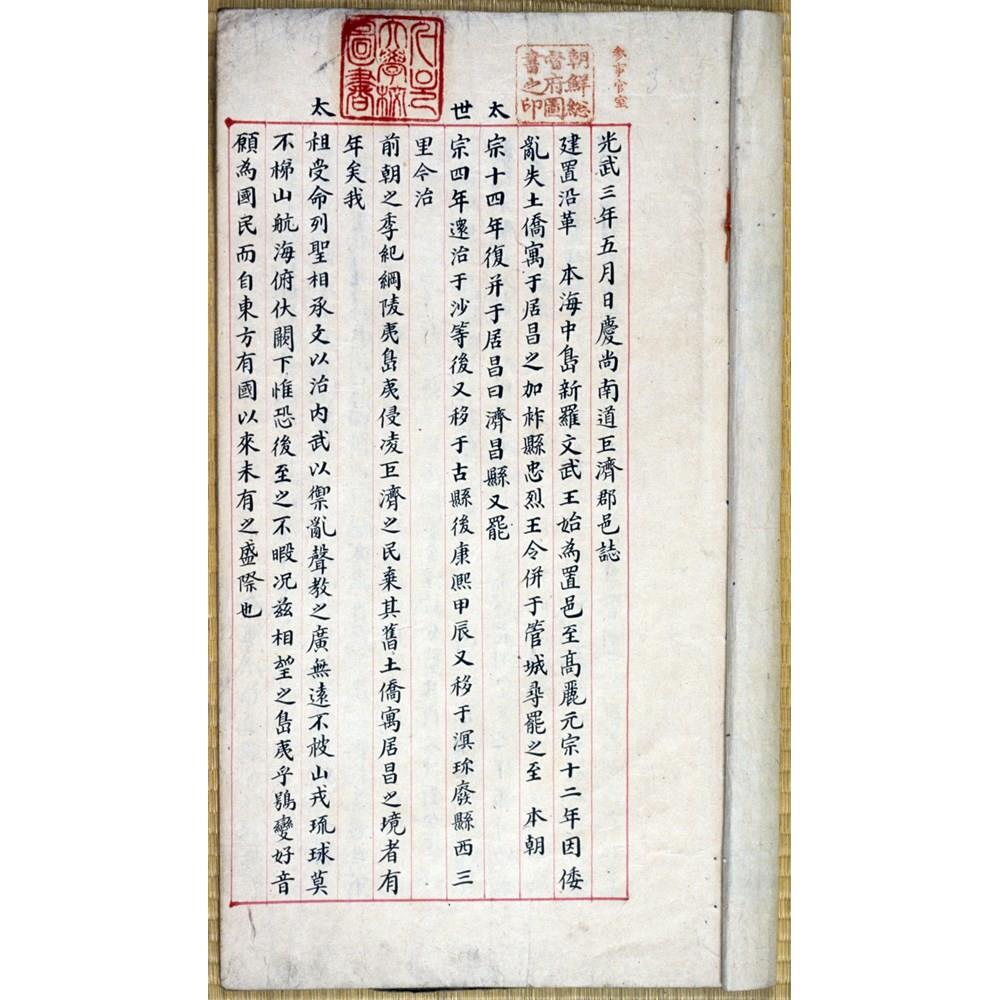 參事官室
朝鮮總督府圖書之印
光武三年五月日慶尚南道巨濟郡邑誌
建置沿革 本海中島新羅文武王始為置邑至高麗元宗十二年因倭
亂失土僑寓于居昌之加柞縣忠烈王令併于管城尋罷之至 本朝
太宗十四年復并于居昌曰濟昌縣又罷
世宗四年還治于沙等後又移于古縣後康熙甲辰又移于溟珎廢縣西三
里今治
前朝之季紀綱陵夷島夷侵凌巨濟之民棄其舊土僑寓居昌之境者有
年矣我
太祖受命列聖相承文以治內武以禦亂聲教之廣無遠不被山戎琉球莫
不梯山航海俯伏闕下惟恐後至之不暇况玆相望之島夷乎鴞變好音
願為國民而自東方有國以來未有之盛際也
大學校圖書